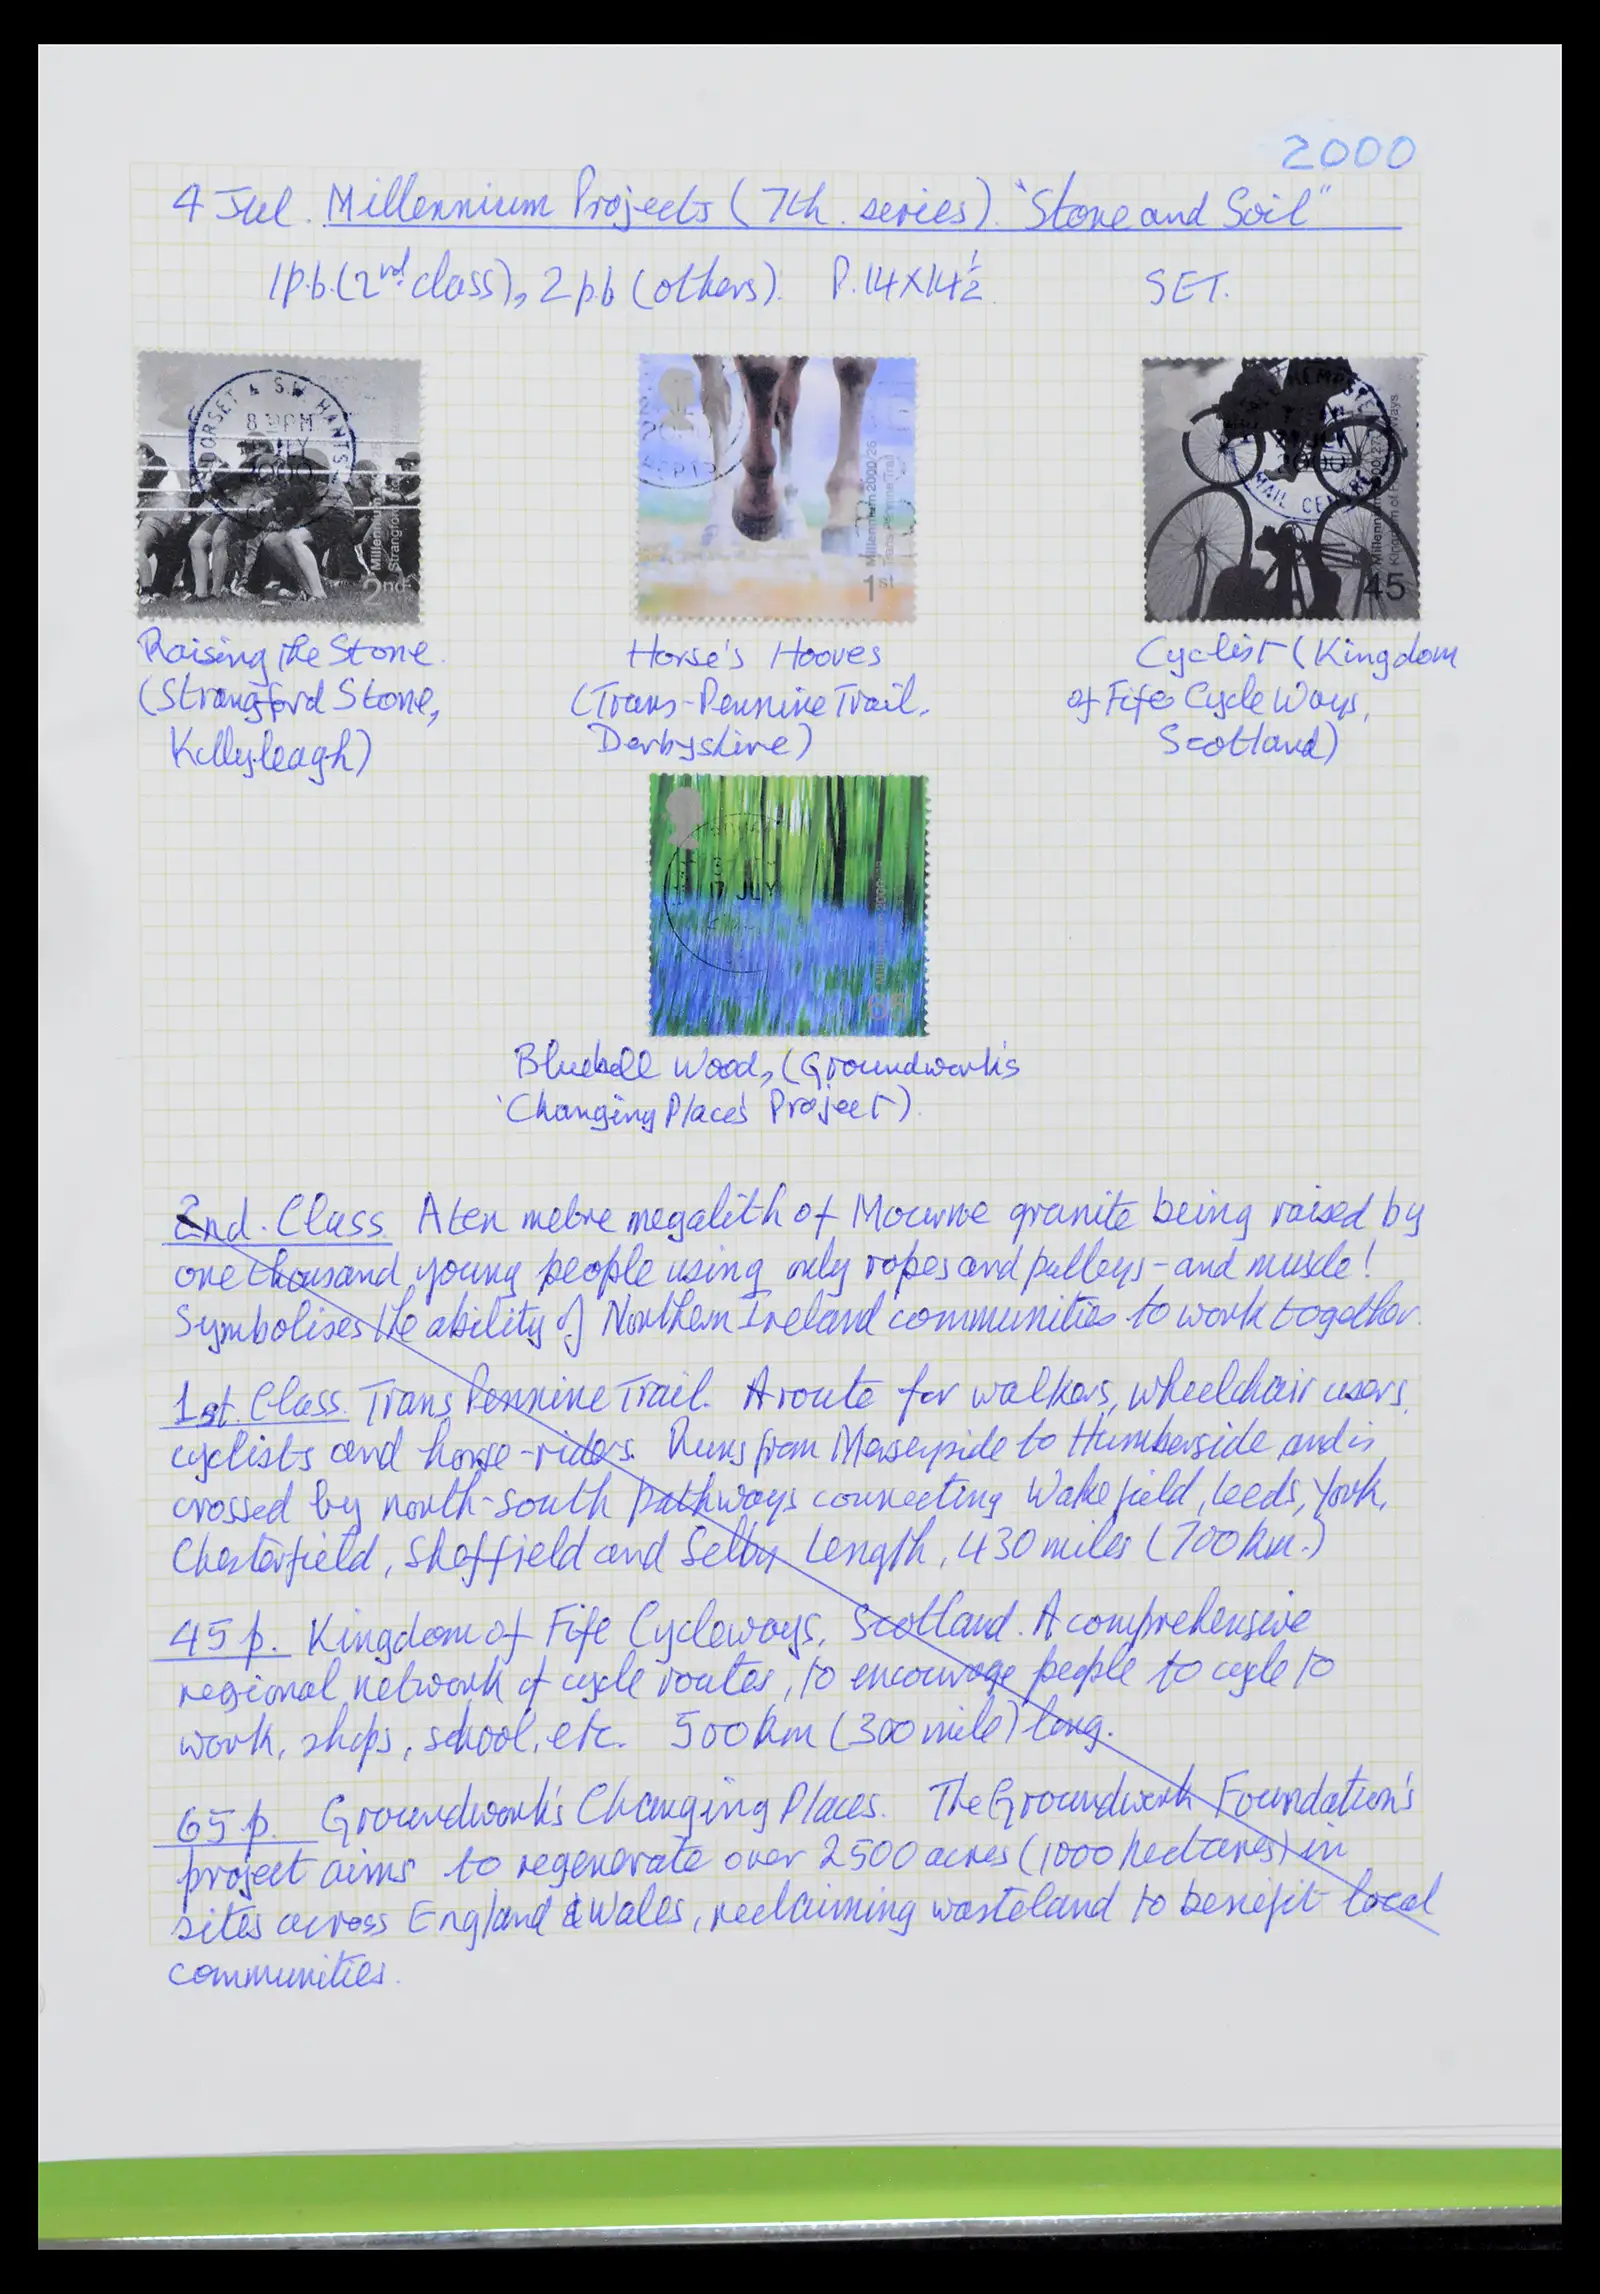 2000
4 Jul. Millennium Projects (7th. series). "Stone and Soil"
1p.b.(2nd. class), 2p.b (others). P.14X14½ SET.
DORSET & S.W HANTS
8 PM
JLY
2000
Millenni
Strangfo
2nd
2000
Millennium 2000/26
Trans Pennine Trail
1st
HEMPSTE
2000
MAIL CENTRE
Millenni
Kingdom of
ways
45
Raising the Stone.
(Strangford Stone,
Killyleagh)
Horse's Hooves
(Trans-Pennine Trail.
Derbyshire)
Cyclist (Kingdom
of Fife Cycle Ways,
Scotland)
17 JLY
65
Bluebell Wood, (Groundwork's
'Changing Places' Project).
2nd. Class. A ten metre megalith of Mourne granite being raised by
one thousand young people using only ropes and pulleys - and muscle!
Symbolises the ability of Northern Ireland communities to work together.
1st. Class. Trans Pennine Trail. A route for walkers, wheelchair users,
cyclists and horse-riders. Runs from Merseyside to Humberside and is
crossed by north-south pathways connecting Wakefield, Leeds, York,
Chesterfield, Sheffield and Selby Length, 430 miles (700 km.)
45 p. Kingdom of Fife Cycleways, Scotland. A comprehensive
regional network of cycle routes, to encourage people to cycle to
work, shops, school, etc. 500 km (300 mile) long.
65 p. Groundwork's Changing Places. The Groundwork Foundation's
project aims to regenerate over 2500 acres (1000 hectares) in
sites across England & Wales, reclaiming wasteland to benefit local
communities.